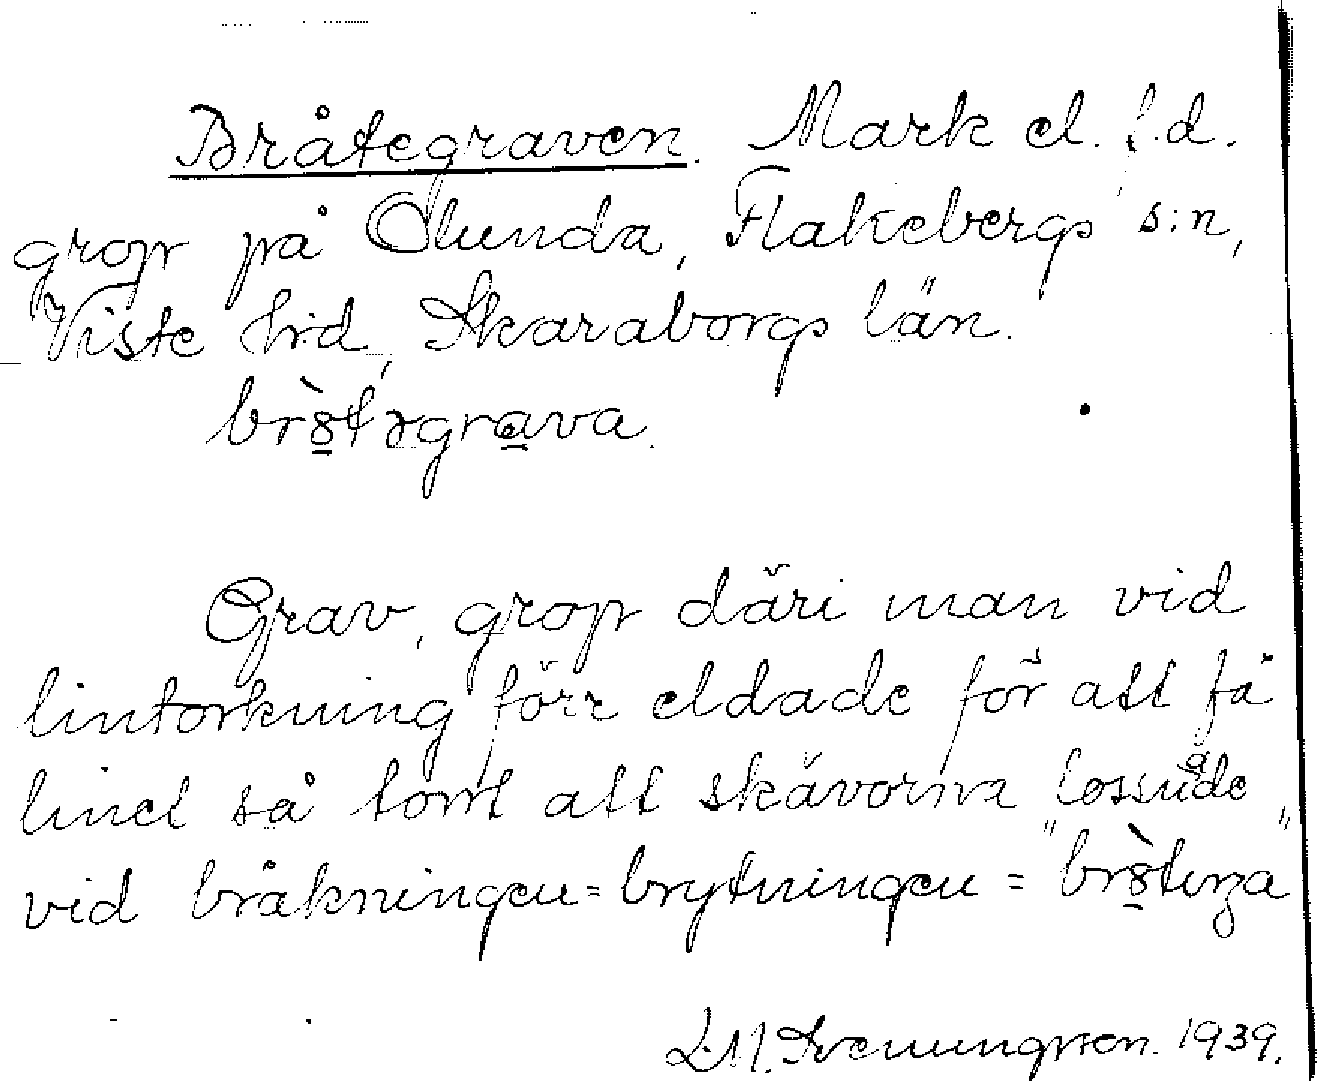 Bråtegraven. Mark el. f.d.
grop på Olunda, Flakebergs s:n,
Viste h:d, Skaraborgs län.
br8̲̀təgra̲va.
Grav, grop däri man vid
lintorkning förr eldade för att få
linet så tort att skävorna lossnade
vid bråkningen = brytningen = "br8̲̀tiŋa"
L.M. Svenungsson. 1939.